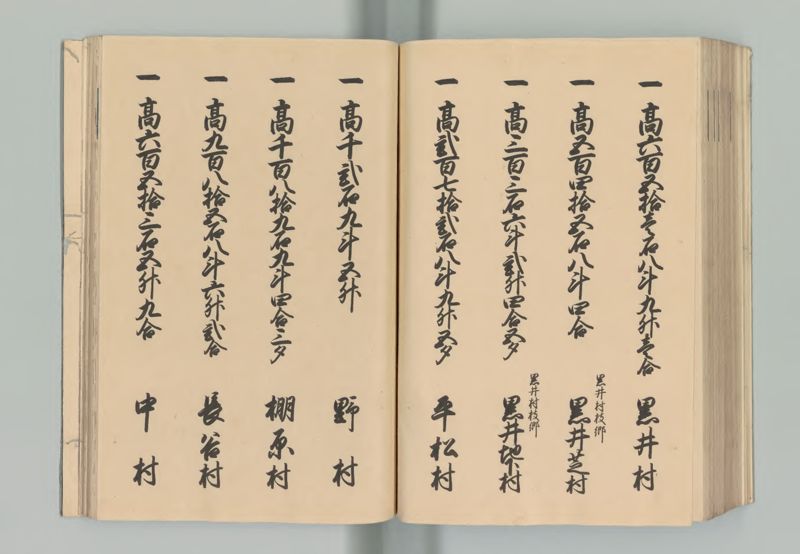 一 高六百五拾壱石八斗九升壱合 黒井村
一 高五百四拾五石八斗四合 黒井村枝郷 黒井芝村
一 高三百三石六斗弐升四合五夕 黒井村枝郷 黒井地下村
一 高弐百七拾弐石八斗九升五夕 平松村
一 高千弐石九斗五升 野村
一 高千百八拾九石九斗四合三夕 棚原村
一 高九百八拾五石八斗六升弐合 長谷村
一 高六百五拾三石五升九合 中村